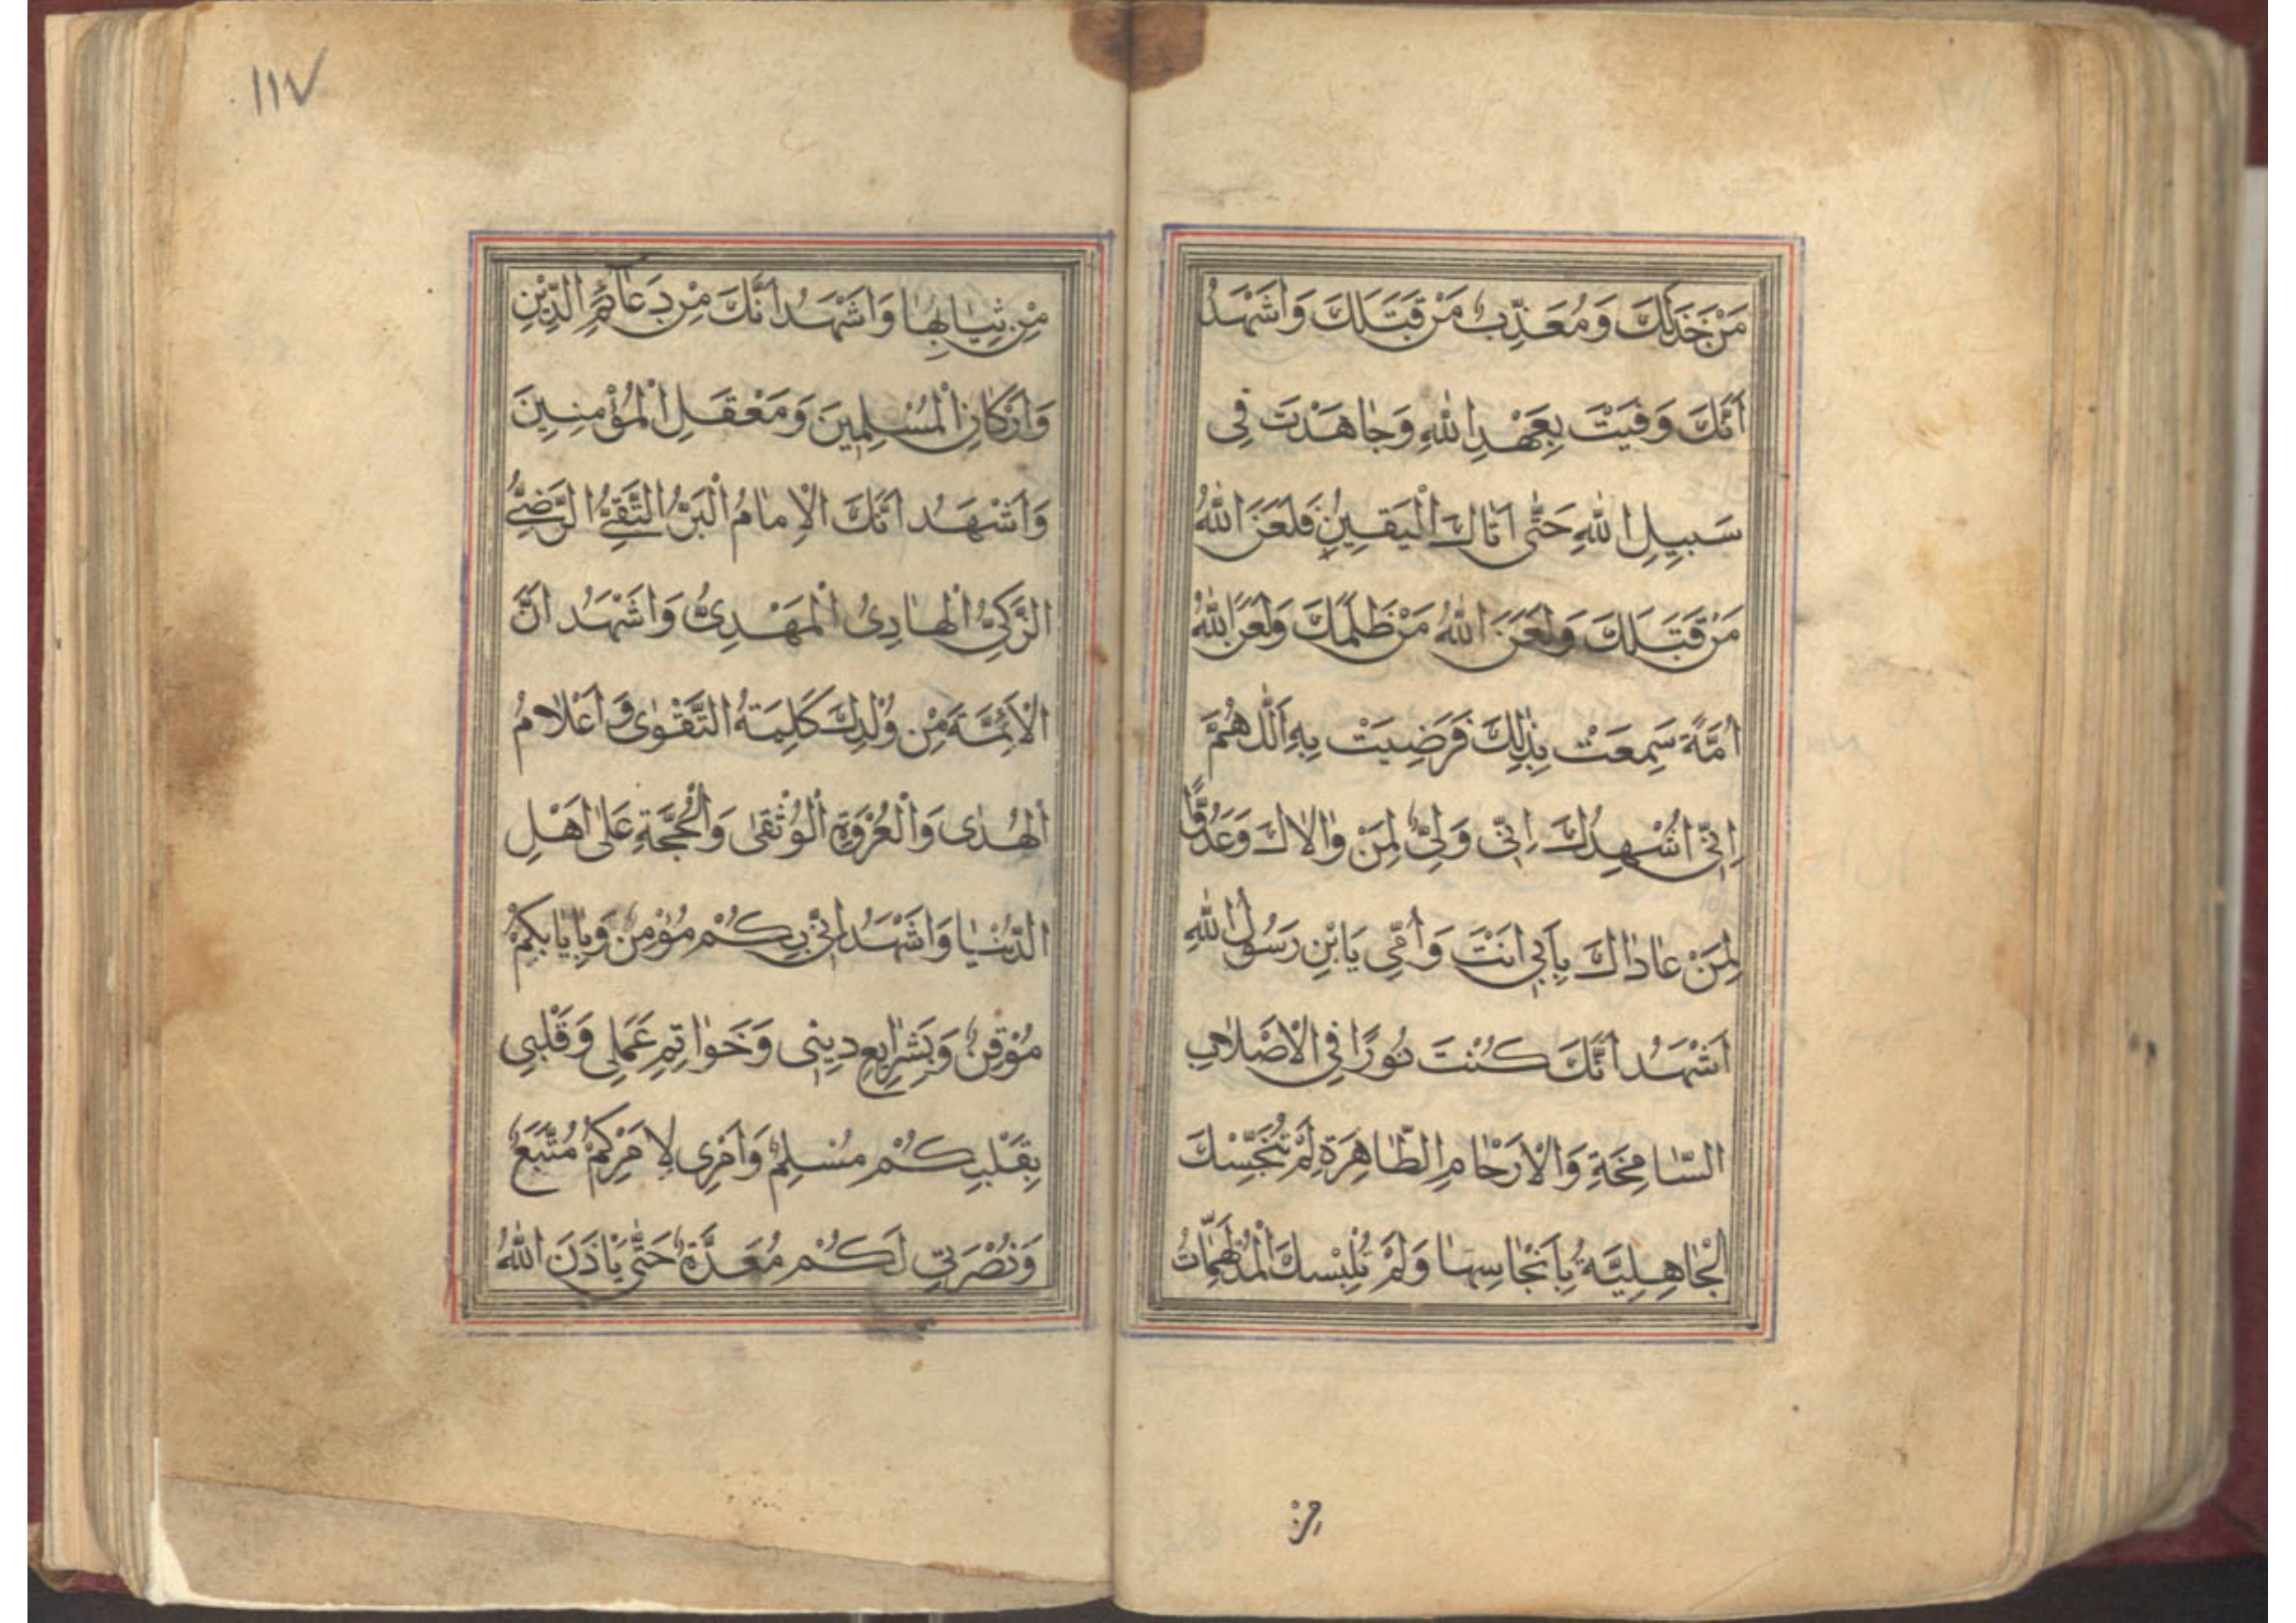 مَنْ خَذَلَكَ وَ مُعَذِّبٌ مَنْ قَتَلَكَ وَ اَشْهَدُ
اَنَّكَ وَفَيْتَ بِعَهْدِ اللّٰهِ وَ جٰاهَدْتَ فِى
سَبِيلِ اللّٰهِ حَتّٰى اَتٰاكَ الْيَقِينُ فَلَعَنَ اللّٰهُ
مَنْ قَتَلَكَ وَ لَعَنَ اللّٰهُ مَنْ ظَلَمَكَ وَ لَعَنَ اللّٰهُ
اُمَّةً سَمِعَتْ بِذٰلِكَ فَرَضِيَتْ بِهِ اَللّٰهُمَّ
اِنِّى اُشْهِدُكَ اِنِّى وَلِىٌّ لِمَنْ وٰالاكَ وَ عَدُوٌّ
لِمَنْ عٰادٰاكَ بِاَبِى اَنْتَ وَ اُمِّى يَابْنِ رَسُولِ اللّٰهِ
اَشْهَدُ اَنَّكَ كُنْتَ نُورًا فِى الْاَصْلٰابِ
الشّٰامِخَةِ وَ الْاَرْحٰامِ الطّٰاهِرَةِ لَمْ تُنَجِّسْكَ
الْجٰاهِلِيَّةُ بِاَنْجٰاسِهٰا وَ لَمْ تُلْبِسْكَ الْمُدْلَهِمّٰاتُ
مِنْ
١١٧
مِنْ ثِيٰابِهٰا وَ اَشْهَدُ اَنَّكَ مِنْ دَعٰائِمِ الدِّيْنِ
وَ اَرْكٰانِ الْمُسْلِمِينَ وَ مَعْقَلِ الْمُؤْمِنِينَ
وَ اَشْهَدُ اَنَّكَ الْاِمٰامُ الْبَرُّ التَّقِىُّ الرَّضِىُّ
الزَّكِىُّ الْهٰادِىُ الْمَهْدِىُّ وَ اَشْهَدُ اَنَّ
الْاَئِمَّةَ مِنْ وُلْدِكَ كَلِمَةُ التَّقْوٰى وَ اَعْلٰامُ
الْهُدٰى وَ الْعُرْوَةِ الْوُثْقىٰ وَ الْحُجَّةِ عَلىٰ اَهْلِ
الدُّنْيٰا وَ اَشْهَدُ اَنِّى بِكُمْ مُؤْمِنٌ وَ بِاِيٰابِكُمْ
مُوْقِنٌ وَ بِشَرٰايِعِ دِينِى وَ خَوٰاتِيمِ عَمَلِى وَ قَلْبِى
بِقَلْبِكُمْ مُسْلِمٌ وَ اَمْرِى لِاَمْرِكُمْ مُتَّبَعٌ
وَ نُصْرَتِى لَكُمْ مُعَدَّةٌ حَتّٰى يَاْذَنَ اللّٰهُ